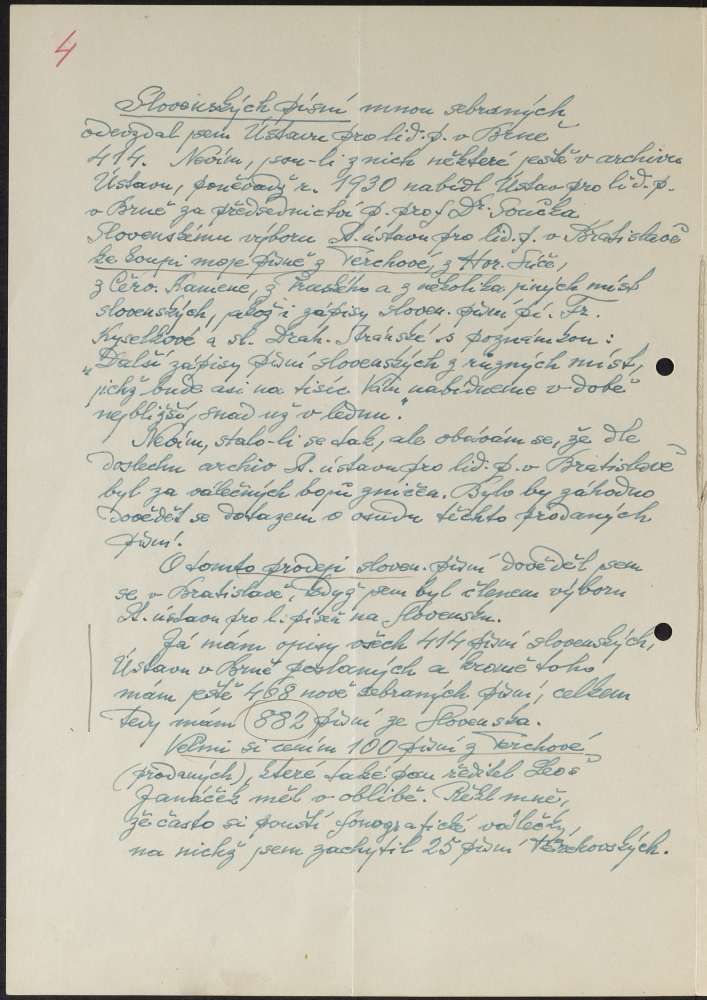 4
Slovenských písní mnou sebraných
odevzdal jsem Ústavu pro lid. p. v Brně
414. Nevím, jsou-li z nich některé ještě v archivu
Ústavu, poněvadž r. 1930 nabídl Ústav pro lid. p.
v Brně za předsednictví p. prof. Dr. Součka
Slovenskému výboru St. ústavu pro lid. p. v Bratislavě
ke koupi moje písně z Terchové, z Hor.
z Červ. Kamene, z a z několika jiných míst
slovenských, jakož i zápisy sloven. písní pí. Fr.
Kyselkové a sl. Drah. Stránské s poznámkou:
„Další zápisy písní slovenských z různých míst,
jichž bude asi na tisíc Vám nabídneme v době
nejbližší, snad už v lednu."
Nevím, stalo-li se tak, ale obávám se, že dle
doslechu archiv St. ústavu pro lid. p. v Bratislavě
byl za válečných bojů zničen. Bylo by záhodno
dovědět se dotazem o osudu těchto prodaných
písní.
O tomto prodeji sloven. písní dověděl jsem
se v Bratislavě, když jsem byl členem výboru
St. ústavu pro l. píseň na Slovensku.
Já mám opisy všech 414 písní slovenských,
Ústavu v Brně poslaných a kromě toho
mám ještě 468 nově sebraných písní, celkem
tedy mám 882 písní ze Slovenska.
Velmi si cením 100 písní z Terchové
(prodaných), které také pan ředitel Leoš
Janáček měl v oblibě. Řekl mně,
že často si pouští fonografické válečky,
na nichž jsem zachytil 25 písní Terchovských.